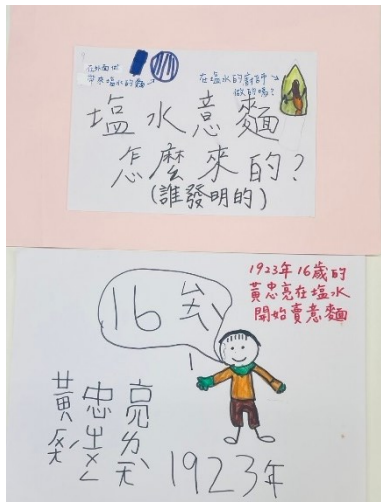 在外面世
帶來塩水的麵
在塩水的
做的嗎?
塩水意麵
怎麼來的?
(誰發明的)
1923年16歲的
黃忠亮在塩水
開始賣意麵
16ㄙㄨㄟˋ
黃忠亮
1923年